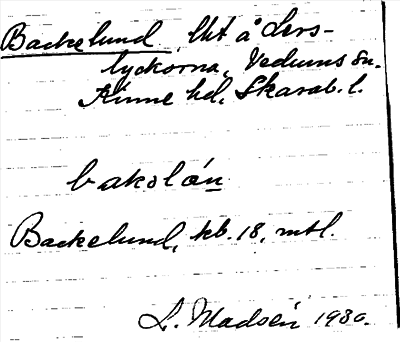 Backelund, lht å Lers-
lyckorna, Vedums sn.
Kinne hd, Skarab. l.
bakəlớn
Backelund, kb. 18, mtl.
L. Madsén 1930.